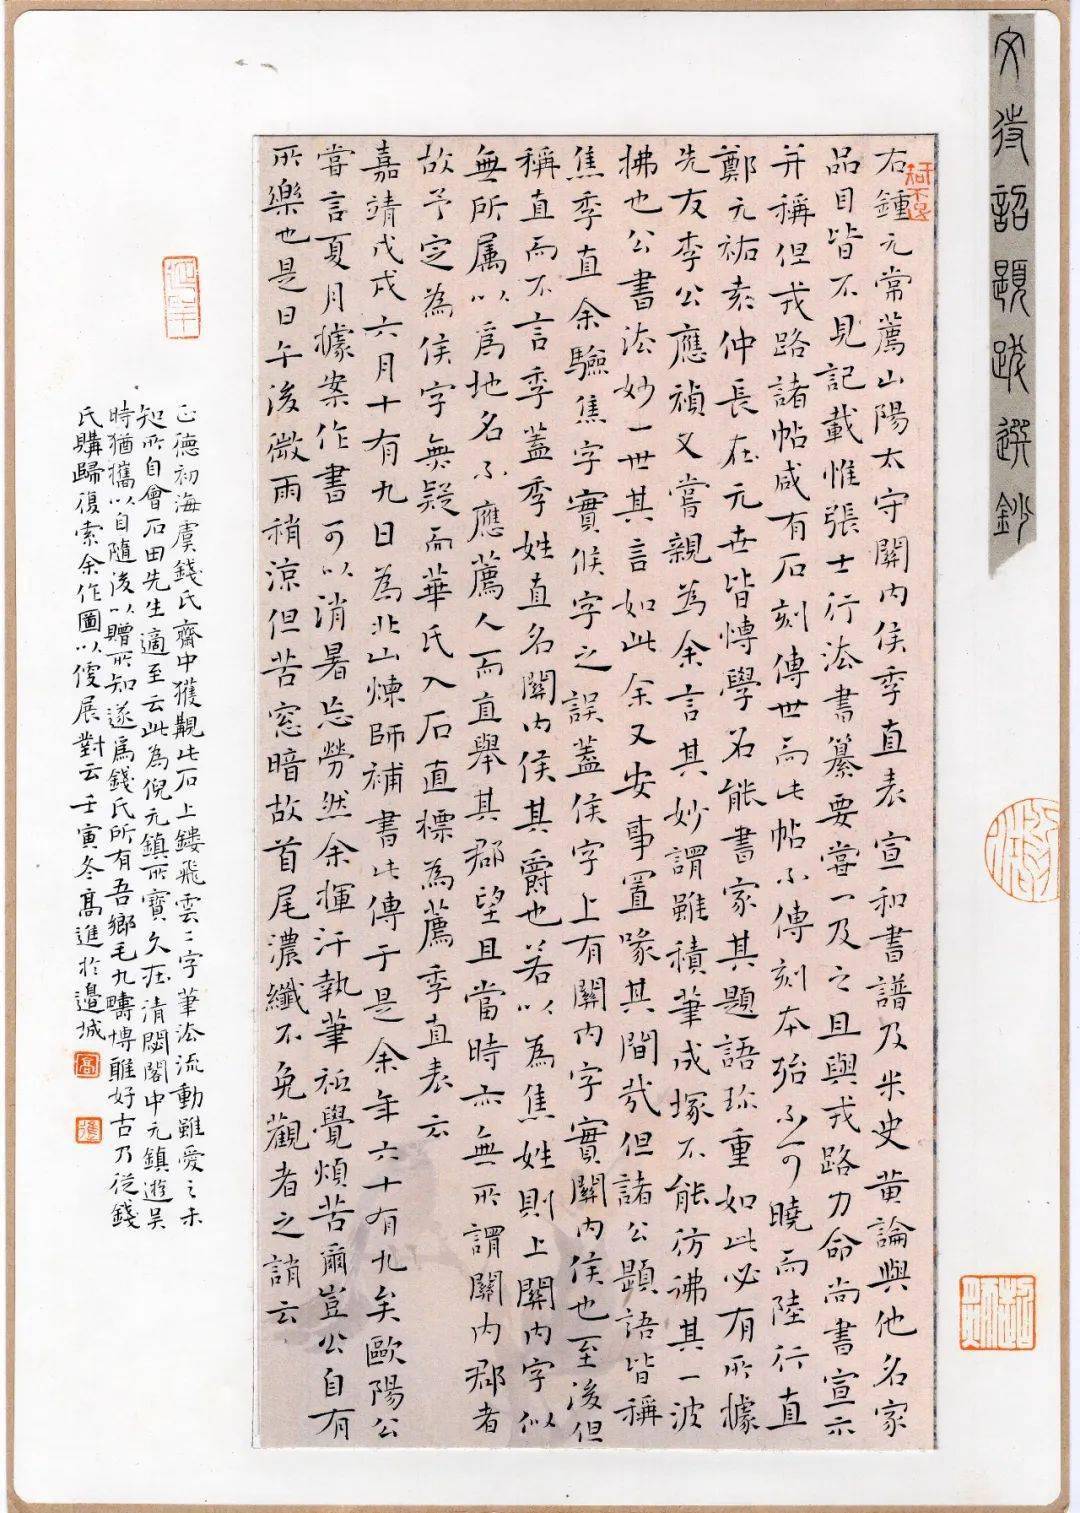 文待詔題跋選鈔
右鍾元常薦山陽太守關內侯季直表宣和書譜及米史黄論與他名家
品目皆不見記載惟張士行法書纂要嘗一及之且與戎路力命尚書宣示
并稱但戎路諸帖咸有石刻傳世而此帖不傳刻本殆不可曉而陸行直
鄭元祐袁仲長在元世皆博學名能書家其題語珍重如此必有所據
先友李公應禎又嘗親為余言其妙謂雖積筆成塚不能彷彿其一波
拂也公書法妙一世其言如此余又安事置喙其間哉但諸公題語皆稱
焦季直余驗焦字實候字之誤蓋侯字上有關內字實關內侯也至後但
稱直而不言季蓋季姓直名關內侯其爵也若以為焦姓則上關內字似
無所屬以爲地名不應薦人而直舉其郡望且當時亦無所謂關內郡者
故予定為侯字無疑而華氏入石直標為薦季直表云
嘉靖戊戌六月十有九日為北山煉師補書此傳于是余年六十有九矣歐陽公
嘗言夏月據案作書可以消暑忘勞然余揮汗執筆祇覺煩苦爾豈公自有
所樂也是日午後微雨稍涼但苦窓暗故首尾濃纖不免觀者之誚云
正德初海虞錢氏齋中獲觀此石上鏤飛雲二字筆法流動雖愛之未
知所自會石田先生適至云此為倪元鎮所寶久在清閟閣中元鎮遊吴
時猶攜以自隨後以贈所知遂爲錢氏所有吾鄉毛九疇博雅好古乃從錢
氏購歸復索余作圖以便展對云壬寅冬高進於邊城